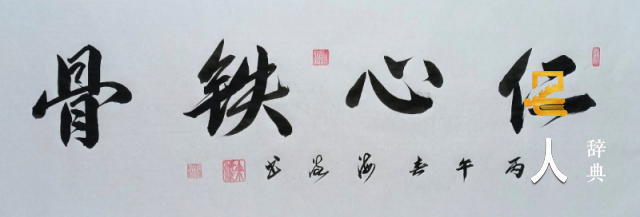 仁心铁骨
丙午春海波书
人
辞典